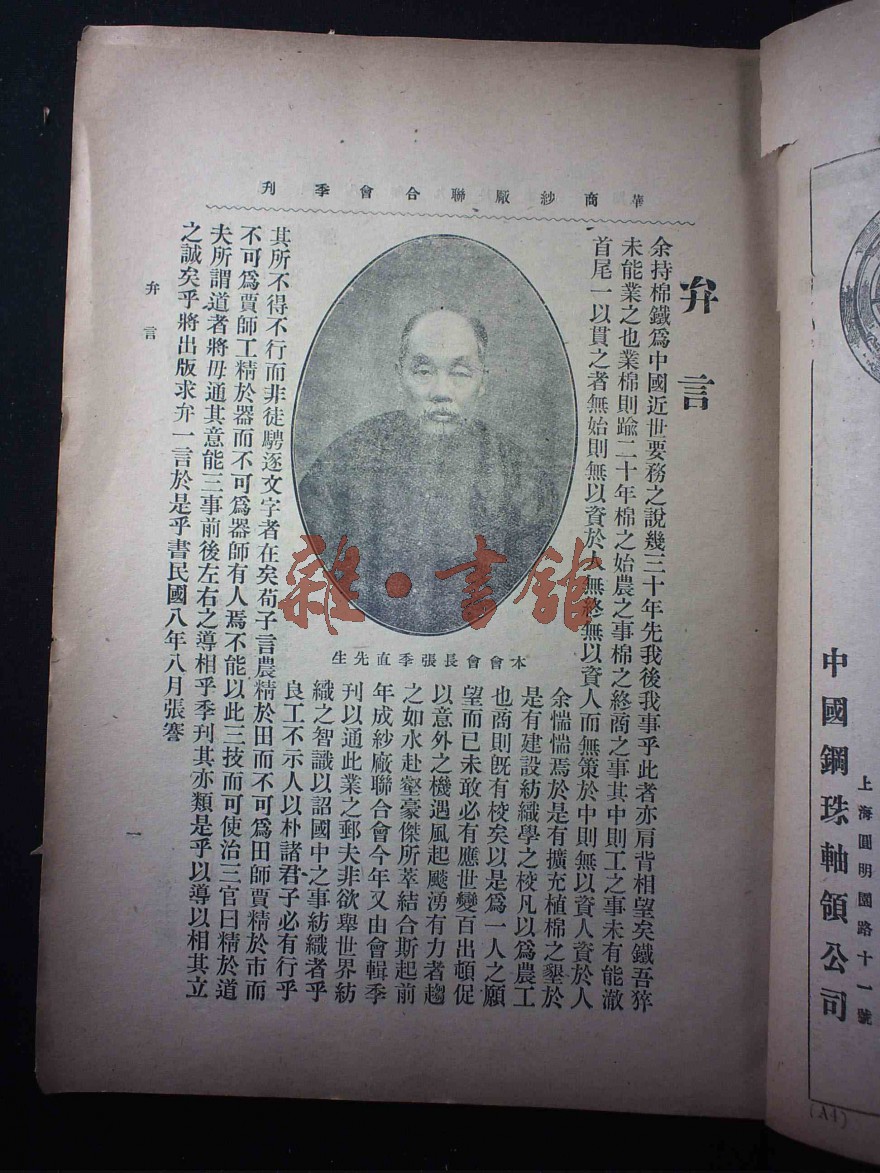 華商紗厰聯合會季刊
弁言
余持棉鐵爲中國近世要務之說幾三十年先我後我事乎此者亦肩背相望矣鐵吾猝
未能業之也業棉則踰二十年棉之始農之事棉之終商之事其中則工之事未有能澈
首尾一以貫之者無始則無以資於人無終無以資人而無策於中則無以資人資於人
余惴惴焉於是有擴充植棉之墾於
是有建設紡織學之校凡以爲農工
也商則旣有校矣以是爲一人之願
望而已未敢必有應世變百出頓促
以意外之機遇風起飈湧有力者趨
之如水赴壑豪傑所萃結合斯起前
年成紗廠聯合會今年又由會輯季
刊以通此業之郵夫非欲舉世界紡
織之智識以詔國中之事紡織者乎
良工不示人以朴諸君子必有行乎
本會會長張季直先生
其所不得不行而非徒騁逐文字者在矣荀子言農精於田而不可爲田師賈精於市而
不可爲賈師工精於器而不可爲器師有人焉不能以此三技而可使治三官曰精於道
夫所謂道者將毋通其意能三事前後左右之導相乎季刊其亦類是乎以導以相其立
之誠矣乎將出版求弁一言於是乎書民國八年八月張謇
弁言
一
雜·書館
上海圓明園路十一號
中國鋼珠軸領公司
(A4)